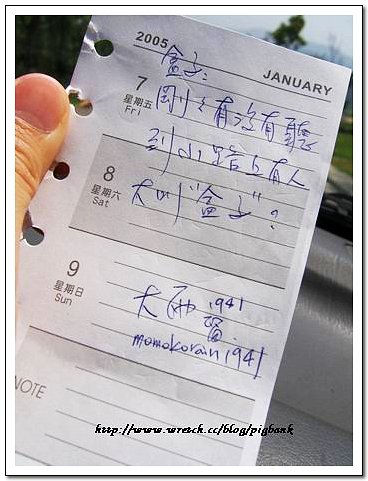 2005
JANUARY
盒子:
7
星期五
Fri
剛々有沒有聽
到小路上有人
8
星期六
Sat
大叫"盒子"?
9
星期日
Sun
大雨 1941
留.
momokorain1941
NOTE
http://www.wretch.cc/blog/pigbank